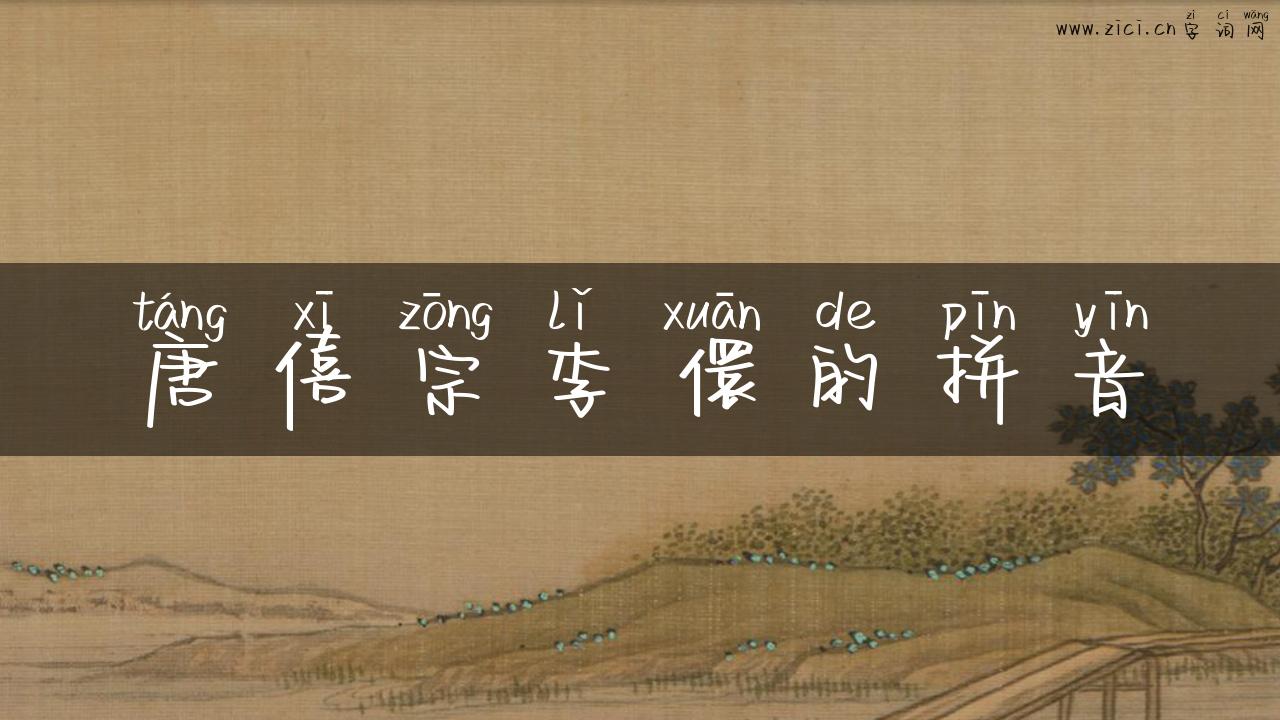 zì cí wǎng
www.zici.cn 字词网
táng xī zōng lǐ xuān de pīn yīn
唐僖宗李儇的拼音